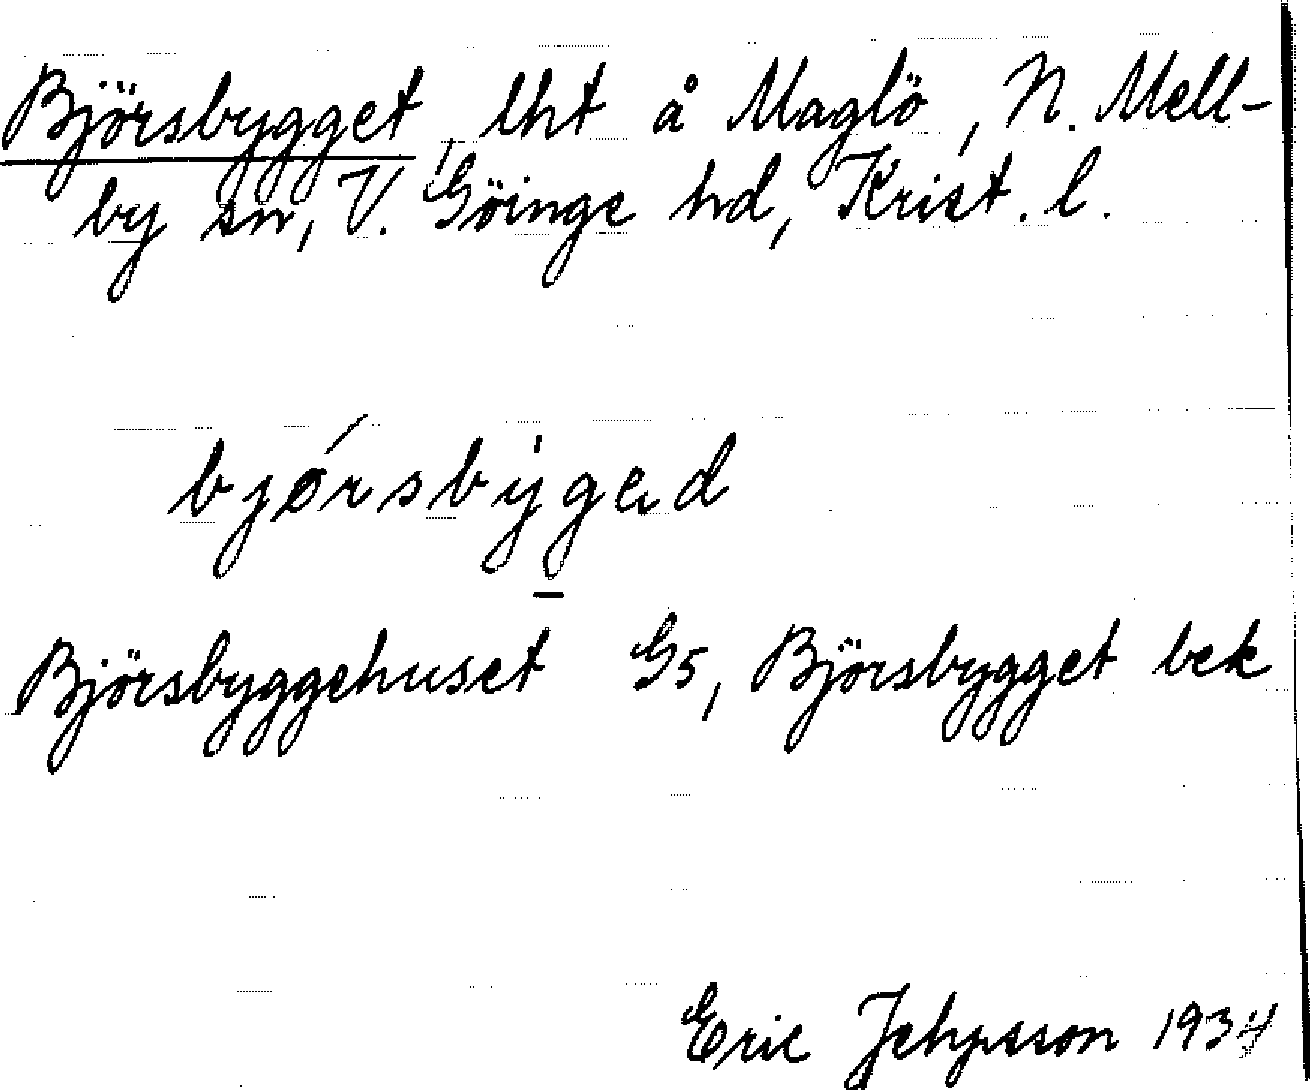 Björsbygget, lht å Maglö, N. Mell-
by sn, V. Göinge hd, Krist. l.
bjórsbyged
Björsbyggehuset G5, Björsbygget bek
Eric Jepsson 1934